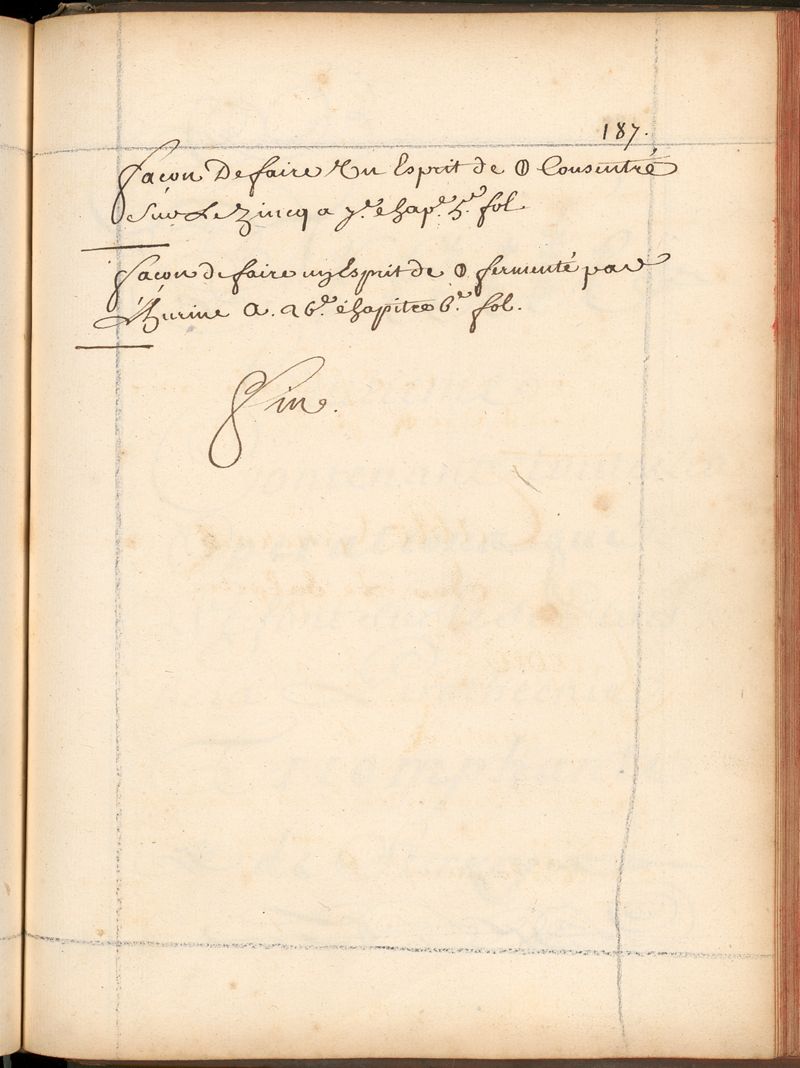 187.
façon De faire Un Esprit de 🜕 Consentré
Sur Le Zincq a 7.e chap.e 5.e fol
façon de faire un Esprit de 🜕 fermenté par
L'hurine a. 26.e chapitre 6.e fol.
Fin.